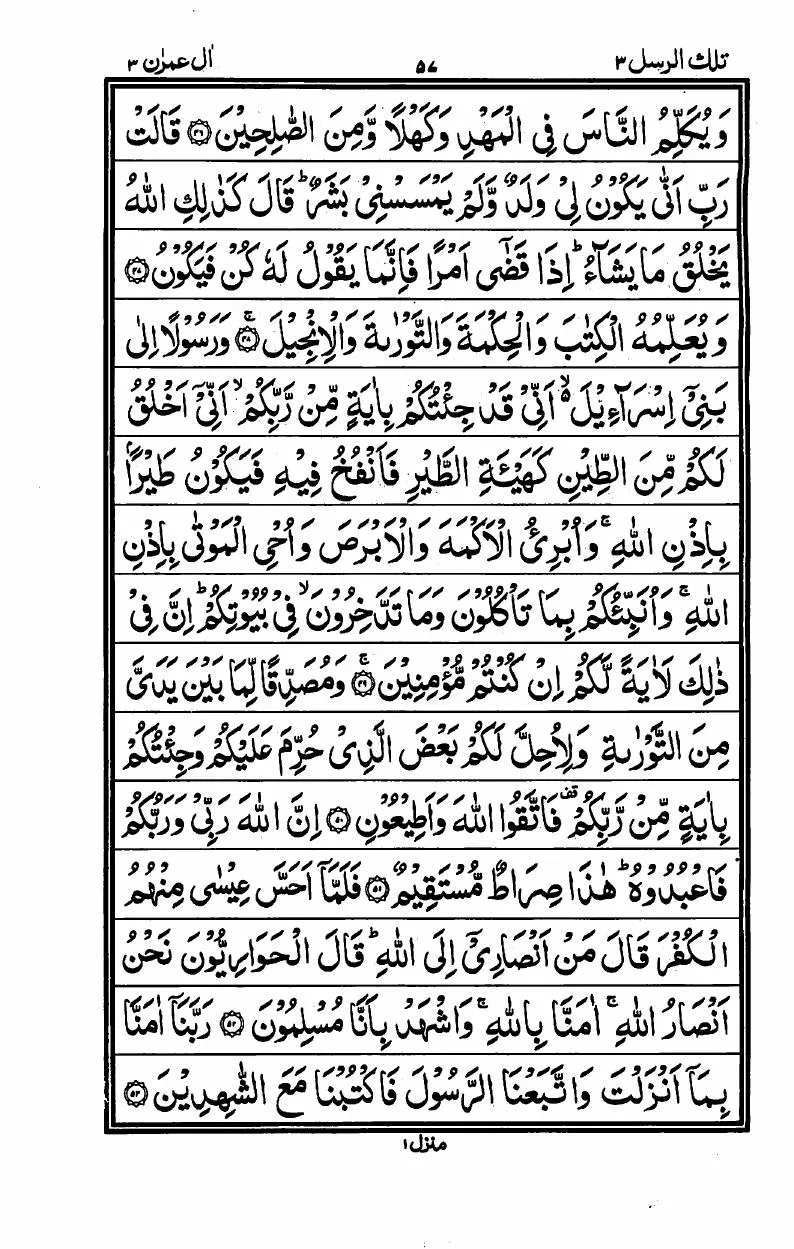 تلك الرسل ۳
۵۷
اٰل عمرٰن ۳
وَیُكَلِّمُ النَّاسَ فِی الْمَهْدِ وَكَهْلًا وَّمِنَ الصّٰلِحِیْنَ ﴿۴۶﴾ قَالَتْ
رَبِّ اَنّٰی یَكُوْنُ لِیْ وَلَدٌ وَّلَمْ یَمْسَسْنِیْ بَشَرٌ ؕ قَالَ كَذٰلِكِ اللّٰهُ
یَخْلُقُ مَا یَشَآءُ ؕ اِذَا قَضٰۤی اَمْرًا فَاِنَّمَا یَقُوْلُ لَهٗ كُنْ فَیَكُوْنُ ﴿۴۷﴾
وَیُعَلِّمُهُ الْكِتٰبَ وَالْحِكْمَةَ وَالتَّوْرٰىةَ وَالْاِنْجِیْلَ ﴿۴۸﴾ ۚ وَرَسُوْلًا اِلٰی
بَنِیْۤ اِسْرَآءِیْلَ ۙ۬ اَنِّیْ قَدْ جِئْتُكُمْ بِاٰیَةٍ مِّنْ رَّبِّكُمْ ۙ اَنِّیْۤ اَخْلُقُ
لَكُمْ مِّنَ الطِّیْنِ كَهَیْـَٔةِ الطَّیْرِ فَاَنْفُخُ فِیْهِ فَیَكُوْنُ طَیْرًۢا
بِاِذْنِ اللّٰهِ ۚ وَاُبْرِئُ الْاَكْمَهَ وَالْاَبْرَصَ وَاُحْیِ الْمَوْتٰی بِاِذْنِ
اللّٰهِ ۚ وَاُنَبِّئُكُمْ بِمَا تَاْكُلُوْنَ وَمَا تَدَّخِرُوْنَ ۙ فِیْ بُیُوْتِكُمْ ؕ اِنَّ فِیْ
ذٰلِكَ لَاٰیَةً لَّكُمْ اِنْ كُنْتُمْ مُّؤْمِنِیْنَ ﴿۴۹﴾ ۚ وَمُصَدِّقًا لِّمَا بَیْنَ یَدَیَّ
مِنَ التَّوْرٰىةِ وَلِاُحِلَّ لَكُمْ بَعْضَ الَّذِیْ حُرِّمَ عَلَیْكُمْ وَجِئْتُكُمْ
بِاٰیَةٍ مِّنْ رَّبِّكُمْ ۫ فَاتَّقُوا اللّٰهَ وَاَطِیْعُوْنِ ﴿۵۰﴾ اِنَّ اللّٰهَ رَبِّیْ وَرَبُّكُمْ
فَاعْبُدُوْهُ ؕ هٰذَا صِرَاطٌ مُّسْتَقِیْمٌ ﴿۵۱﴾ فَلَمَّاۤ اَحَسَّ عِیْسٰی مِنْهُمُ
الْكُفْرَ قَالَ مَنْ اَنْصَارِیْۤ اِلَی اللّٰهِ ؕ قَالَ الْحَوَارِیُّوْنَ نَحْنُ
اَنْصَارُ اللّٰهِ ۚ اٰمَنَّا بِاللّٰهِ ۚ وَاشْهَدْ بِاَنَّا مُسْلِمُوْنَ ﴿۵۲﴾ رَبَّنَاۤ اٰمَنَّا
بِمَاۤ اَنْزَلْتَ وَاتَّبَعْنَا الرَّسُوْلَ فَاكْتُبْنَا مَعَ الشّٰهِدِیْنَ ﴿۵۳﴾
منزل ۱